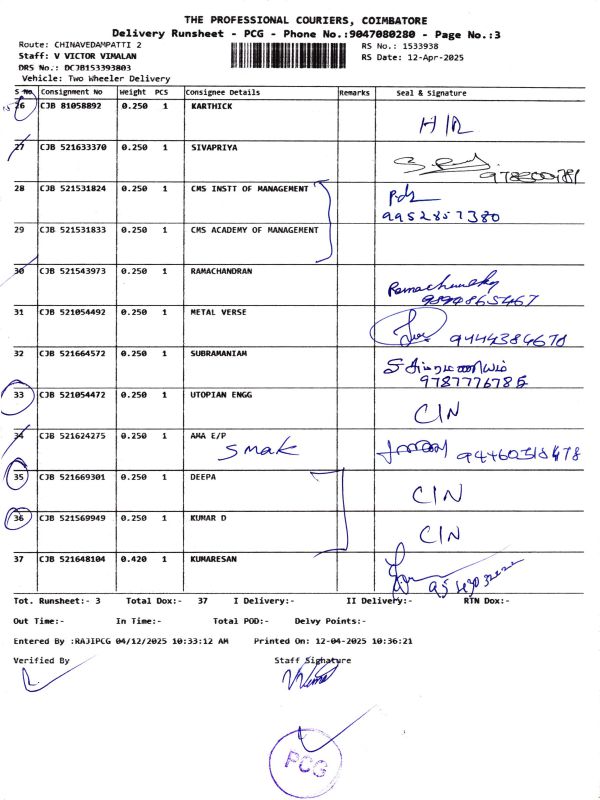 THE PROFESSIONAL COURIERS, COIMBATORE
Delivery Runsheet - PCG - Phone No.:9047080280 - Page No.:3
Route: CHINAVEDAMPATTI 2 RS No.: 1533938
Staff: V VICTOR VIMALAN RS Date: 12-Apr-2025
DRS No.: DCJB153393803
Vehicle: Two Wheeler Delivery
S No Consignment No Weight PCS Consignee Details Remarks Seal & Signature
26 CJB 81058892 0.250 1 KARTHICK
H/R
27 CJB 521633370 0.250 1 SIVAPRIYA
28 CJB 521531824 0.250 1 CMS INSTT OF MANAGEMENT
9952857380
29 CJB 521531833 0.250 1 CMS ACADEMY OF MANAGEMENT
30 CJB 521543973 0.250 1 RAMACHANDRAN
31 CJB 521054492 0.250 1 METAL VERSE
9444384670
32 CJB 521664572 0.250 1 SUBRAMANIAM
9787776785
33 CJB 521054472 0.250 1 UTOPIAN ENGG
C/N
34 CJB 521624275 0.250 1 AMA E/P
Smak
35 CJB 521669301 0.250 1 DEEPA
C/N
36 CJB 521569949 0.250 1 KUMAR D
C/N
37 CJB 521648104 0.420 1 KUMARESAN
Tot. Runsheet:- 3 Total Dox:- 37 I Delivery:- II Delivery:- RTN Dox:-
Out Time:- In Time:- Total POD:- Delvy Points:-
Entered By :RAJIPCG 04/12/2025 10:33:12 AM Printed On: 12-04-2025 10:36:21
Verified By Staff Signature
PCG